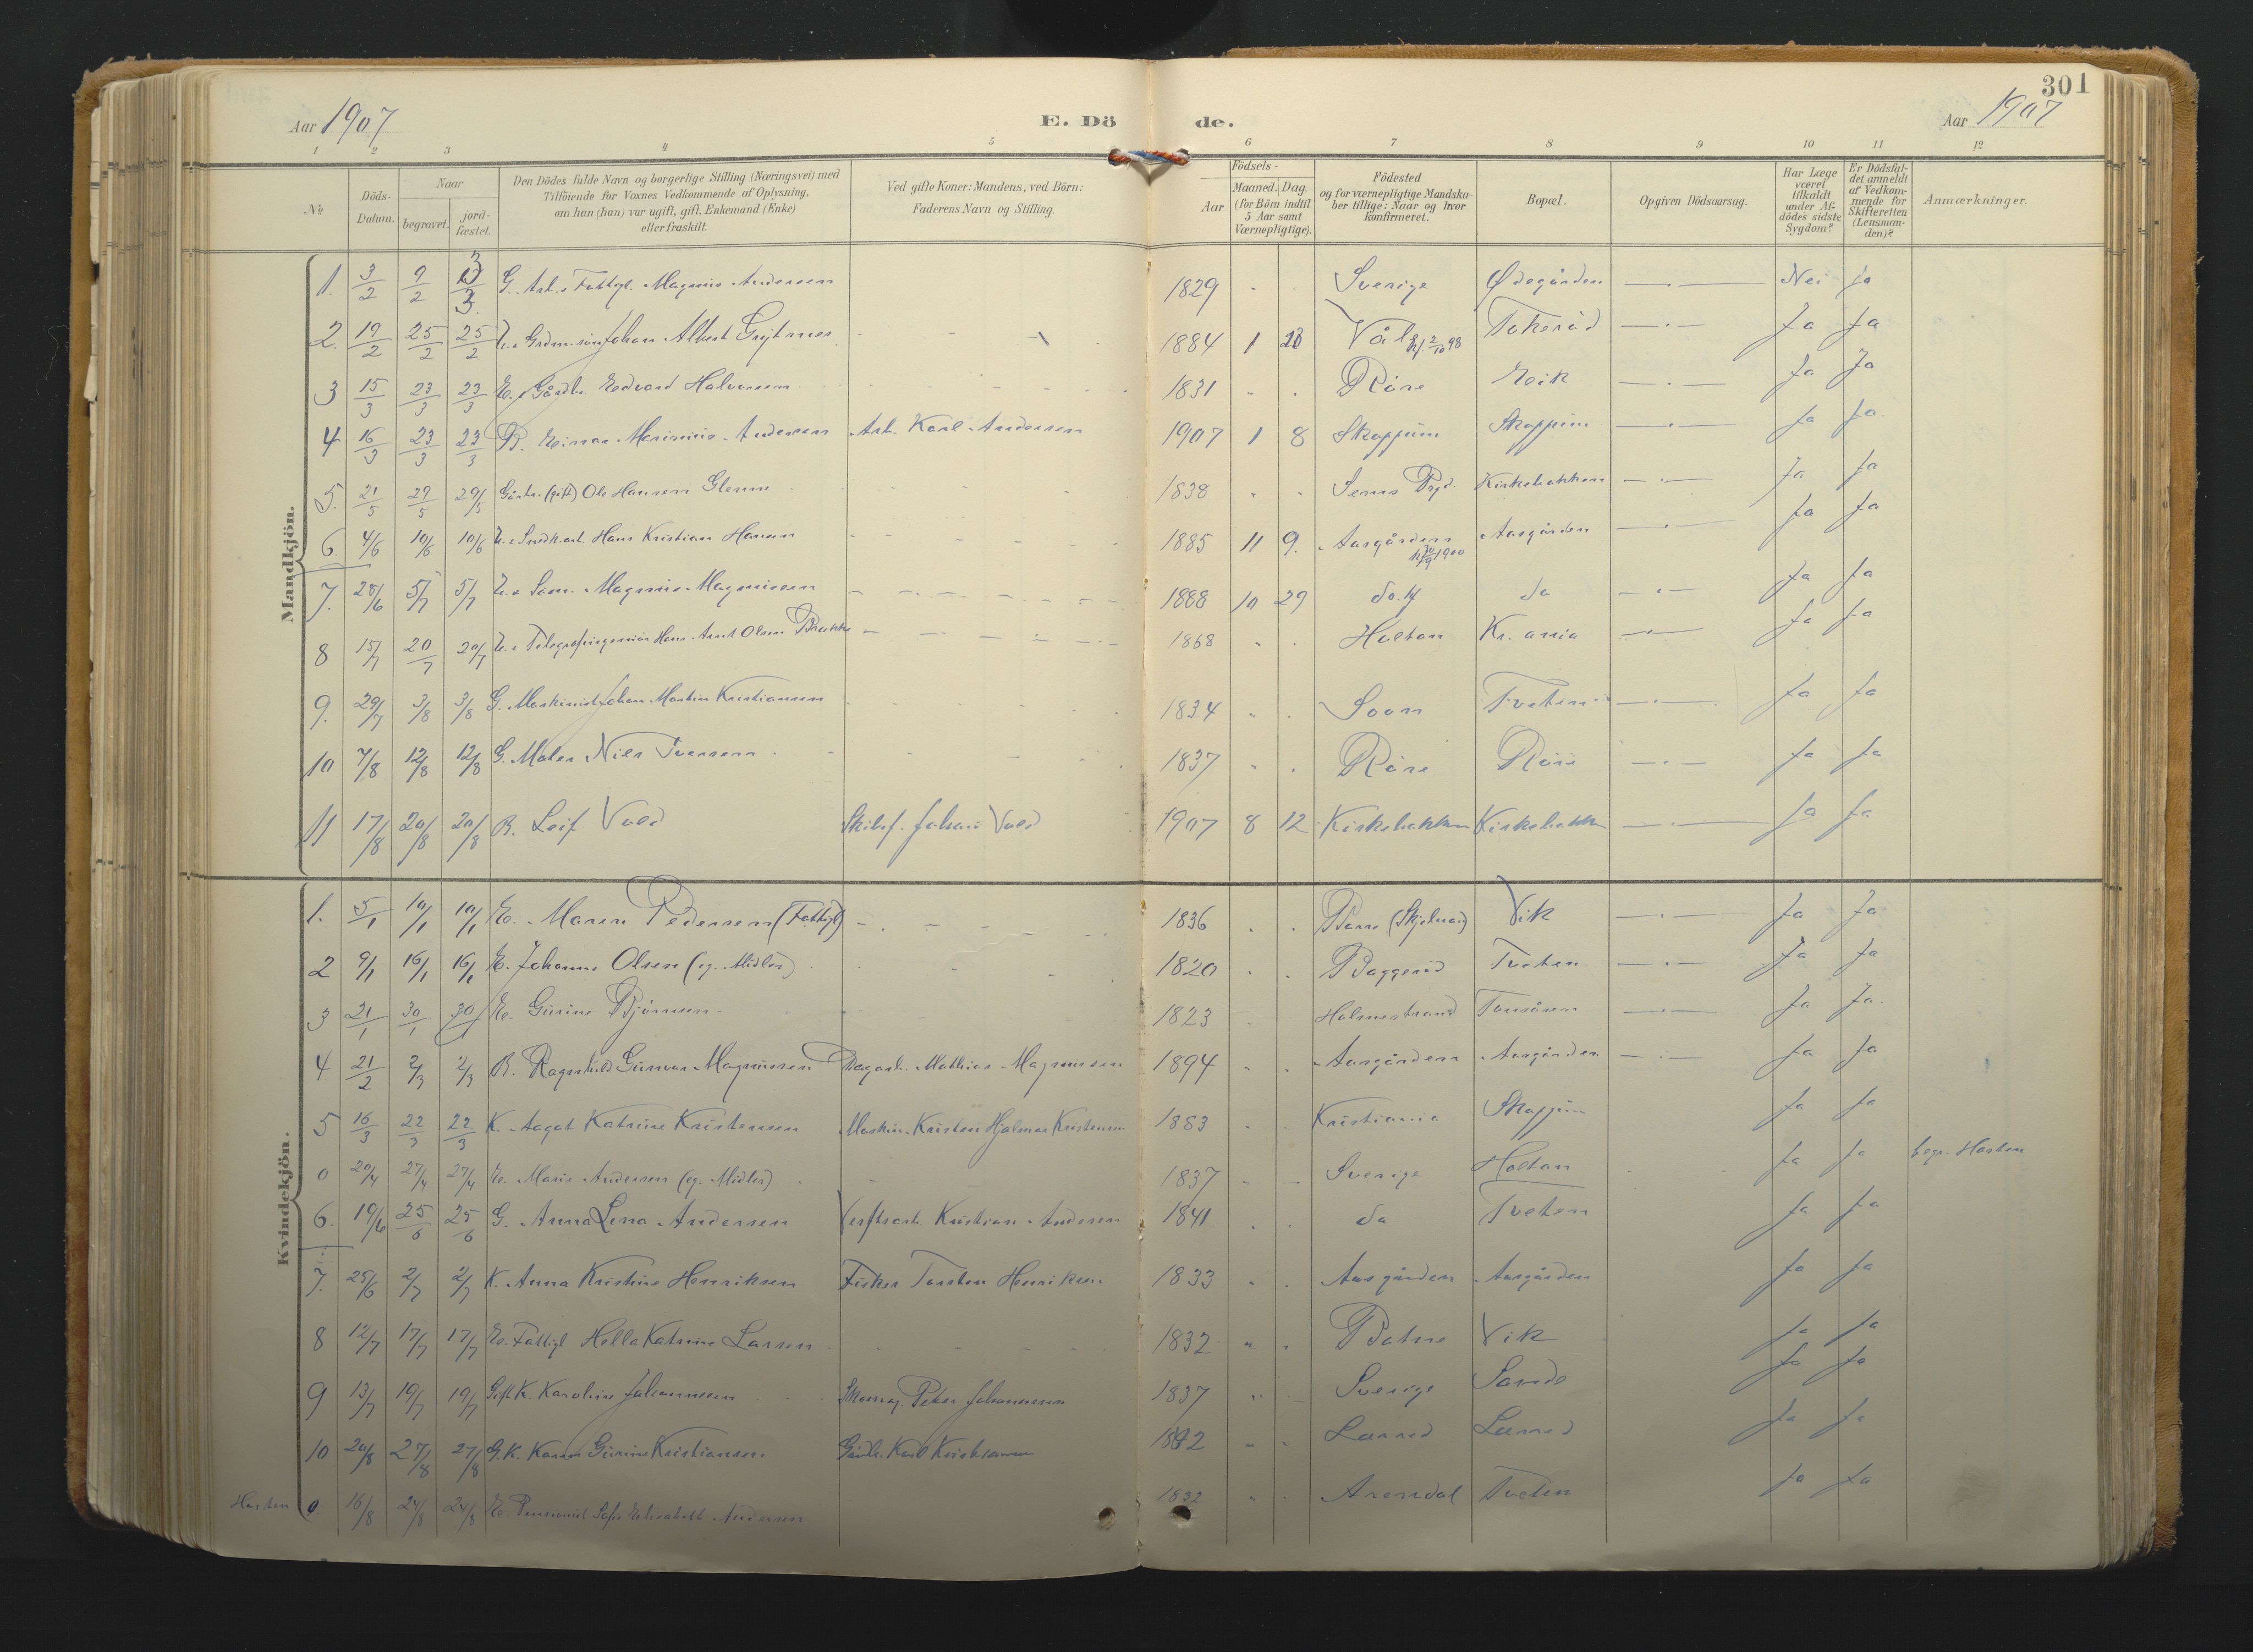 301
Aar 1907
E. Dö de.
Aar 1907
1 2 3 4 5 6 7 8 9 10 11 12
No
Döds-Datum.
Naar
begravet.
jord-fæstet.
Den Dödes fulde Navn og borgerlige Stilling (Næringsvei) med
Tilföiende for Voxnes Vedkommende af Oplysning.
om han (hun) var ugift, gift, Enkemand (Enke)
eller fraskilt.
Ved gifte Koner: Mandens, ved Börn:
Faderens Navn og Stilling.
Aar
Födsels-
Maaned. Dag.
(for Börn indtil
5 Aar samt
Værnepligtige).
Födested
og for værnepligtige Mandska-
ber tillige: Naar og hvor
konfirmeret.
Bopæl.
Opgiven Dödsaarsag.
Har Læge
været
tilkaldt
under Af-
dödes sidste
Sygdom?
Er Dödsfal-
det anmeldt
af Vedkom-
mende for
Skifteretten
(Lensman-
den)?
Anmærkninger.
Mandkjön.
1. 3/2 9/2 3/3 G. Arb. Fattigl. Magnus Andersen 1829 Sverige Ødegården Nei Ja
2. 19/2 25/2 25/2 U. Grdm. sön Johan Albert 1884 1 Vål kf. 2/10 98 Tokeröd Ja Ja
3 15/3 23/3 23/3 E. Gårdbr. Edvard Halvorsen 1831 Röre Eik Ja Ja
4 16/3 23/3 23/3 B. Einar Marinius Andersen Arb. Karl Andersen 1907 1 8 Skoppum Skoppum Ja Ja
5. 21/5 29/5 29/5 Gårbr. (gift) Ole Hansen Glenne 1838 Sems Prgd. Kirkebakken Ja Ja
6. 4/6 10/6 10/6 U. Snedk.arb. Hans Kristian Hansen 1885 11 9. Aasgården 1900 Aasgården Ja Ja
7. 28/6 5/7 5/7 U. Søm. Magnus Magnussen 1888 10 29 do. do Ja Ja
8 15/7 20/7 20/7 U. Telegrafingeniör Hans Arnt Olsen Brekke 1868 Holtan Kr.ania Ja Ja
9. 29/7 3/8 3/8 G. Maskinist Johan Martin Kristiansen 1834 Soon Tveten Ja Ja
10 7/8 12/8 12/8 G. Maler Niels Iversen 1837 Röre Röre Ja Ja
11 17/8 20/8 20/8 B. Leif Vold Skibsf. Johan Vold 1907 8 12 Kirkebakken Kirkebakken Ja Ja
Kvindekjön.
1. 5/1 10/1 10/1 E. Maren Pedersen (Fattigl) 1836 Borre Vik Ja Ja
2 9/1 16/1 16/1 E. Johanne Olsen (eg. Midler) 1820 Baggeröd Tveten Ja Ja
3 21/1 30/1 30/1 E. Gurine Bjørnsen 1823 Holmestrand Ja Ja
4 21/2 2/3 2/3 B. Ragnhild Gunvor Magnussen Dagarb. Mathias Magnussen 1894 Aasgården Aasgården Ja Ja
5 16/3 22/3 22/3 K. Aagot Katrine Kristensen Maskin. Kristen Hjalmar Kristensen 1883 Kristiania Skoppum Ja Ja
0 20/4 27/4 27/4 E. Marie Andersen (eg. Midler) 1837 Sverige Holtan Ja Ja begr. Horten
6. 19/6 25/6 25/6 G. Anna Lena Andersen Verftsarb. Kristian Andersen 1841 do Tveten Ja Ja
7. 25/6 2/7 2/7 K. Anna Kristine Henriksen Fisker Torsten Henriksen 1833 Aasgården Aasgården Ja Ja
8 12/7 17/7 17/7 E. Fattigl Hella Katrine Larsen 1832 Botne Vik Ja Ja
9 13/7 19/7 19/7 Gift K. Karoline Johannessen Peter Johannessen 1837 Sverige Sande Ja Ja
10 20/8 27/8 27/8 G.K. Karen Gurine Kristiansen Gårdb. Karl Kristiansen Ja Ja
Horten 0 16/8 24/8 24/8 E. Sofie Elisabeth Andersen 1832 Arendal Tveten Ja Ja